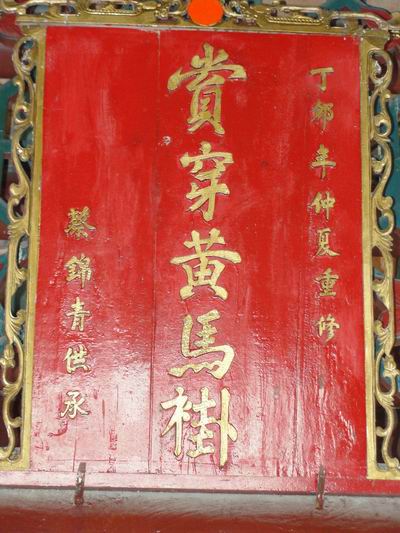 丁卯年仲夏重修
賞穿黃馬褂
蔡錦青供承